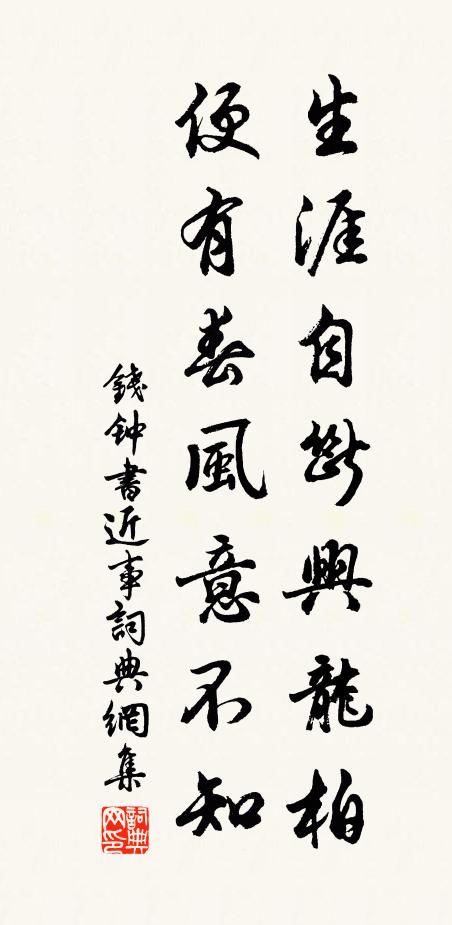 生涯自斷興龍柏
便有春風意不知
錢钟書近事詞典網集
詞典
网印